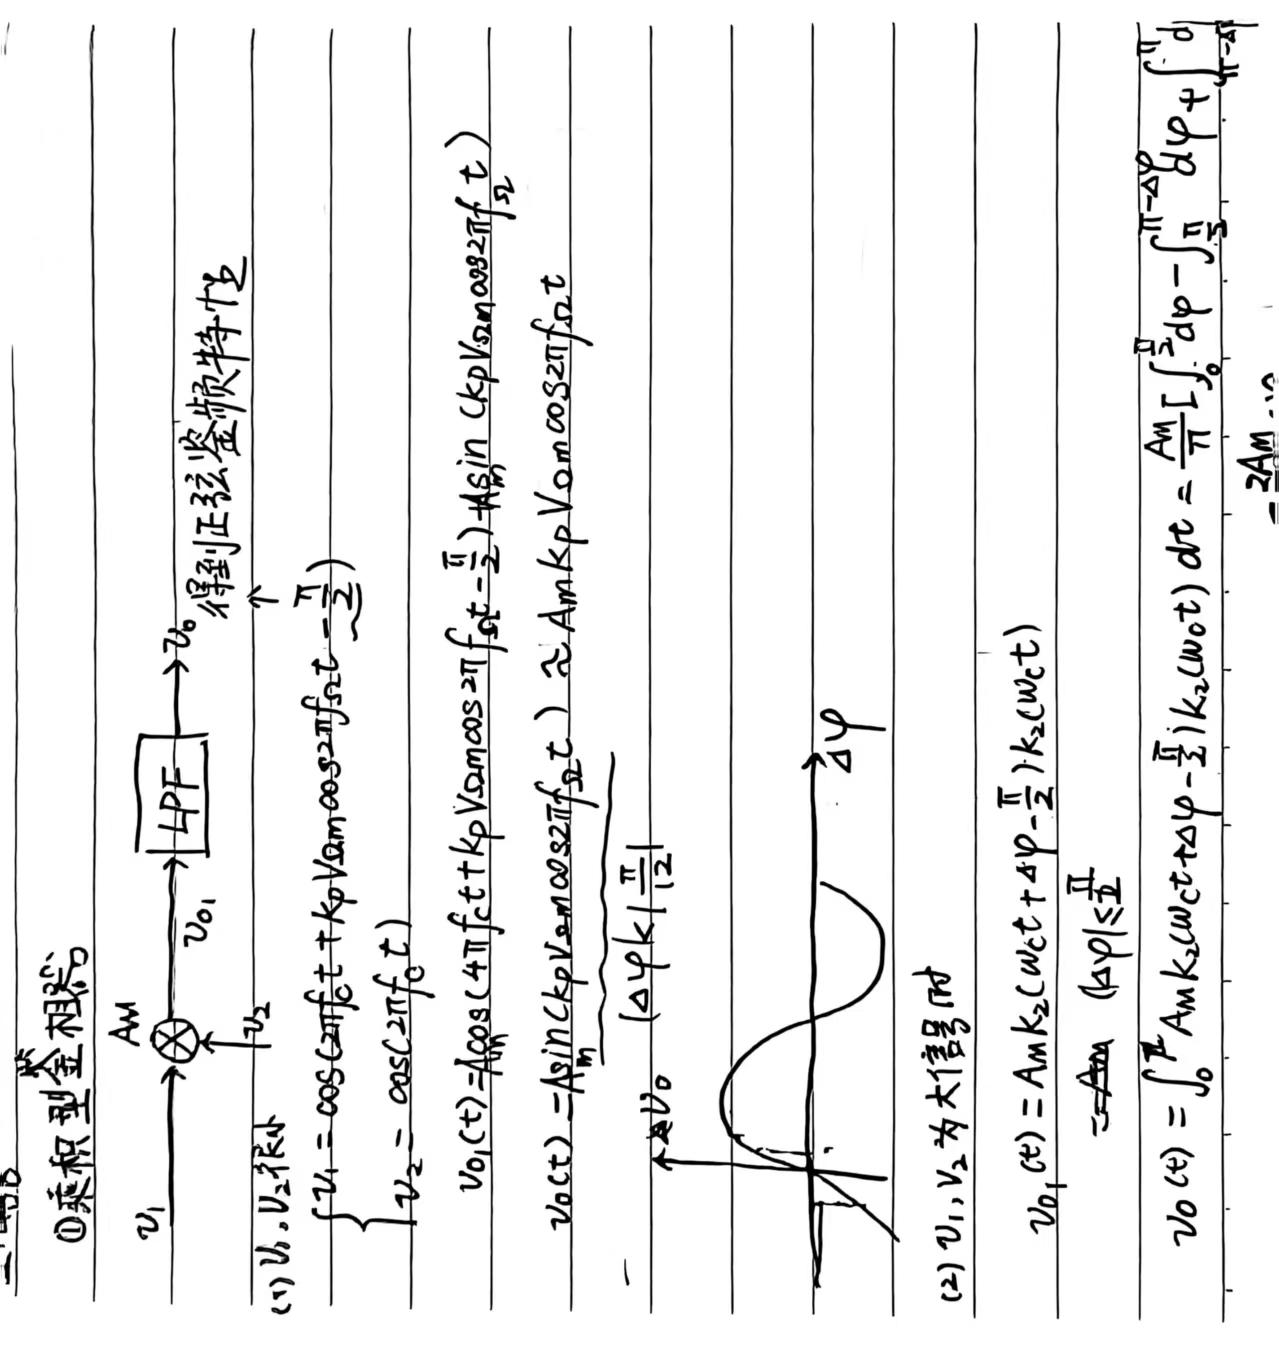 ①乘积型鉴相器
v₁ AM v₀₁ LPF v₀
v₂
得到正弦鉴频特性
(1) v₁、v₂很小
v₁ = cos(2πf_ct + k_pV_Ωmcos2πf_Ωt - π/2)
v₂ = cos(2πf_ct)
v₀₁(t) = A_m cos(4πf_ct + k_pV_Ωmcos2πf_Ωt - π/2) + A_m sin(k_pV_Ωmcos2πf_Ωt)
v₀(t) = A_m sin(k_pV_Ωmcos2πf_Ωt) ≈ A_m k_pV_Ωmcos2πf_Ωt
|Δφ|<|π/12|
v₀
Δφ
(2) v₁、v₂为大信号时
v₀₁(t) = A_m k₂(ω_ct + Δφ - π/2)·k₂(ω_ct)
|Δφ|≤π/2
v₀(t) = ∫₀^π A_m k₂(ω_ct + Δφ - π/2) k₂(ω₀t) dt = A_m/π [∫₀^{π/2} dφ - ∫_{π/2}^{π-Δφ} dφ + ∫_{π-Δφ}^π d
= 2A_m